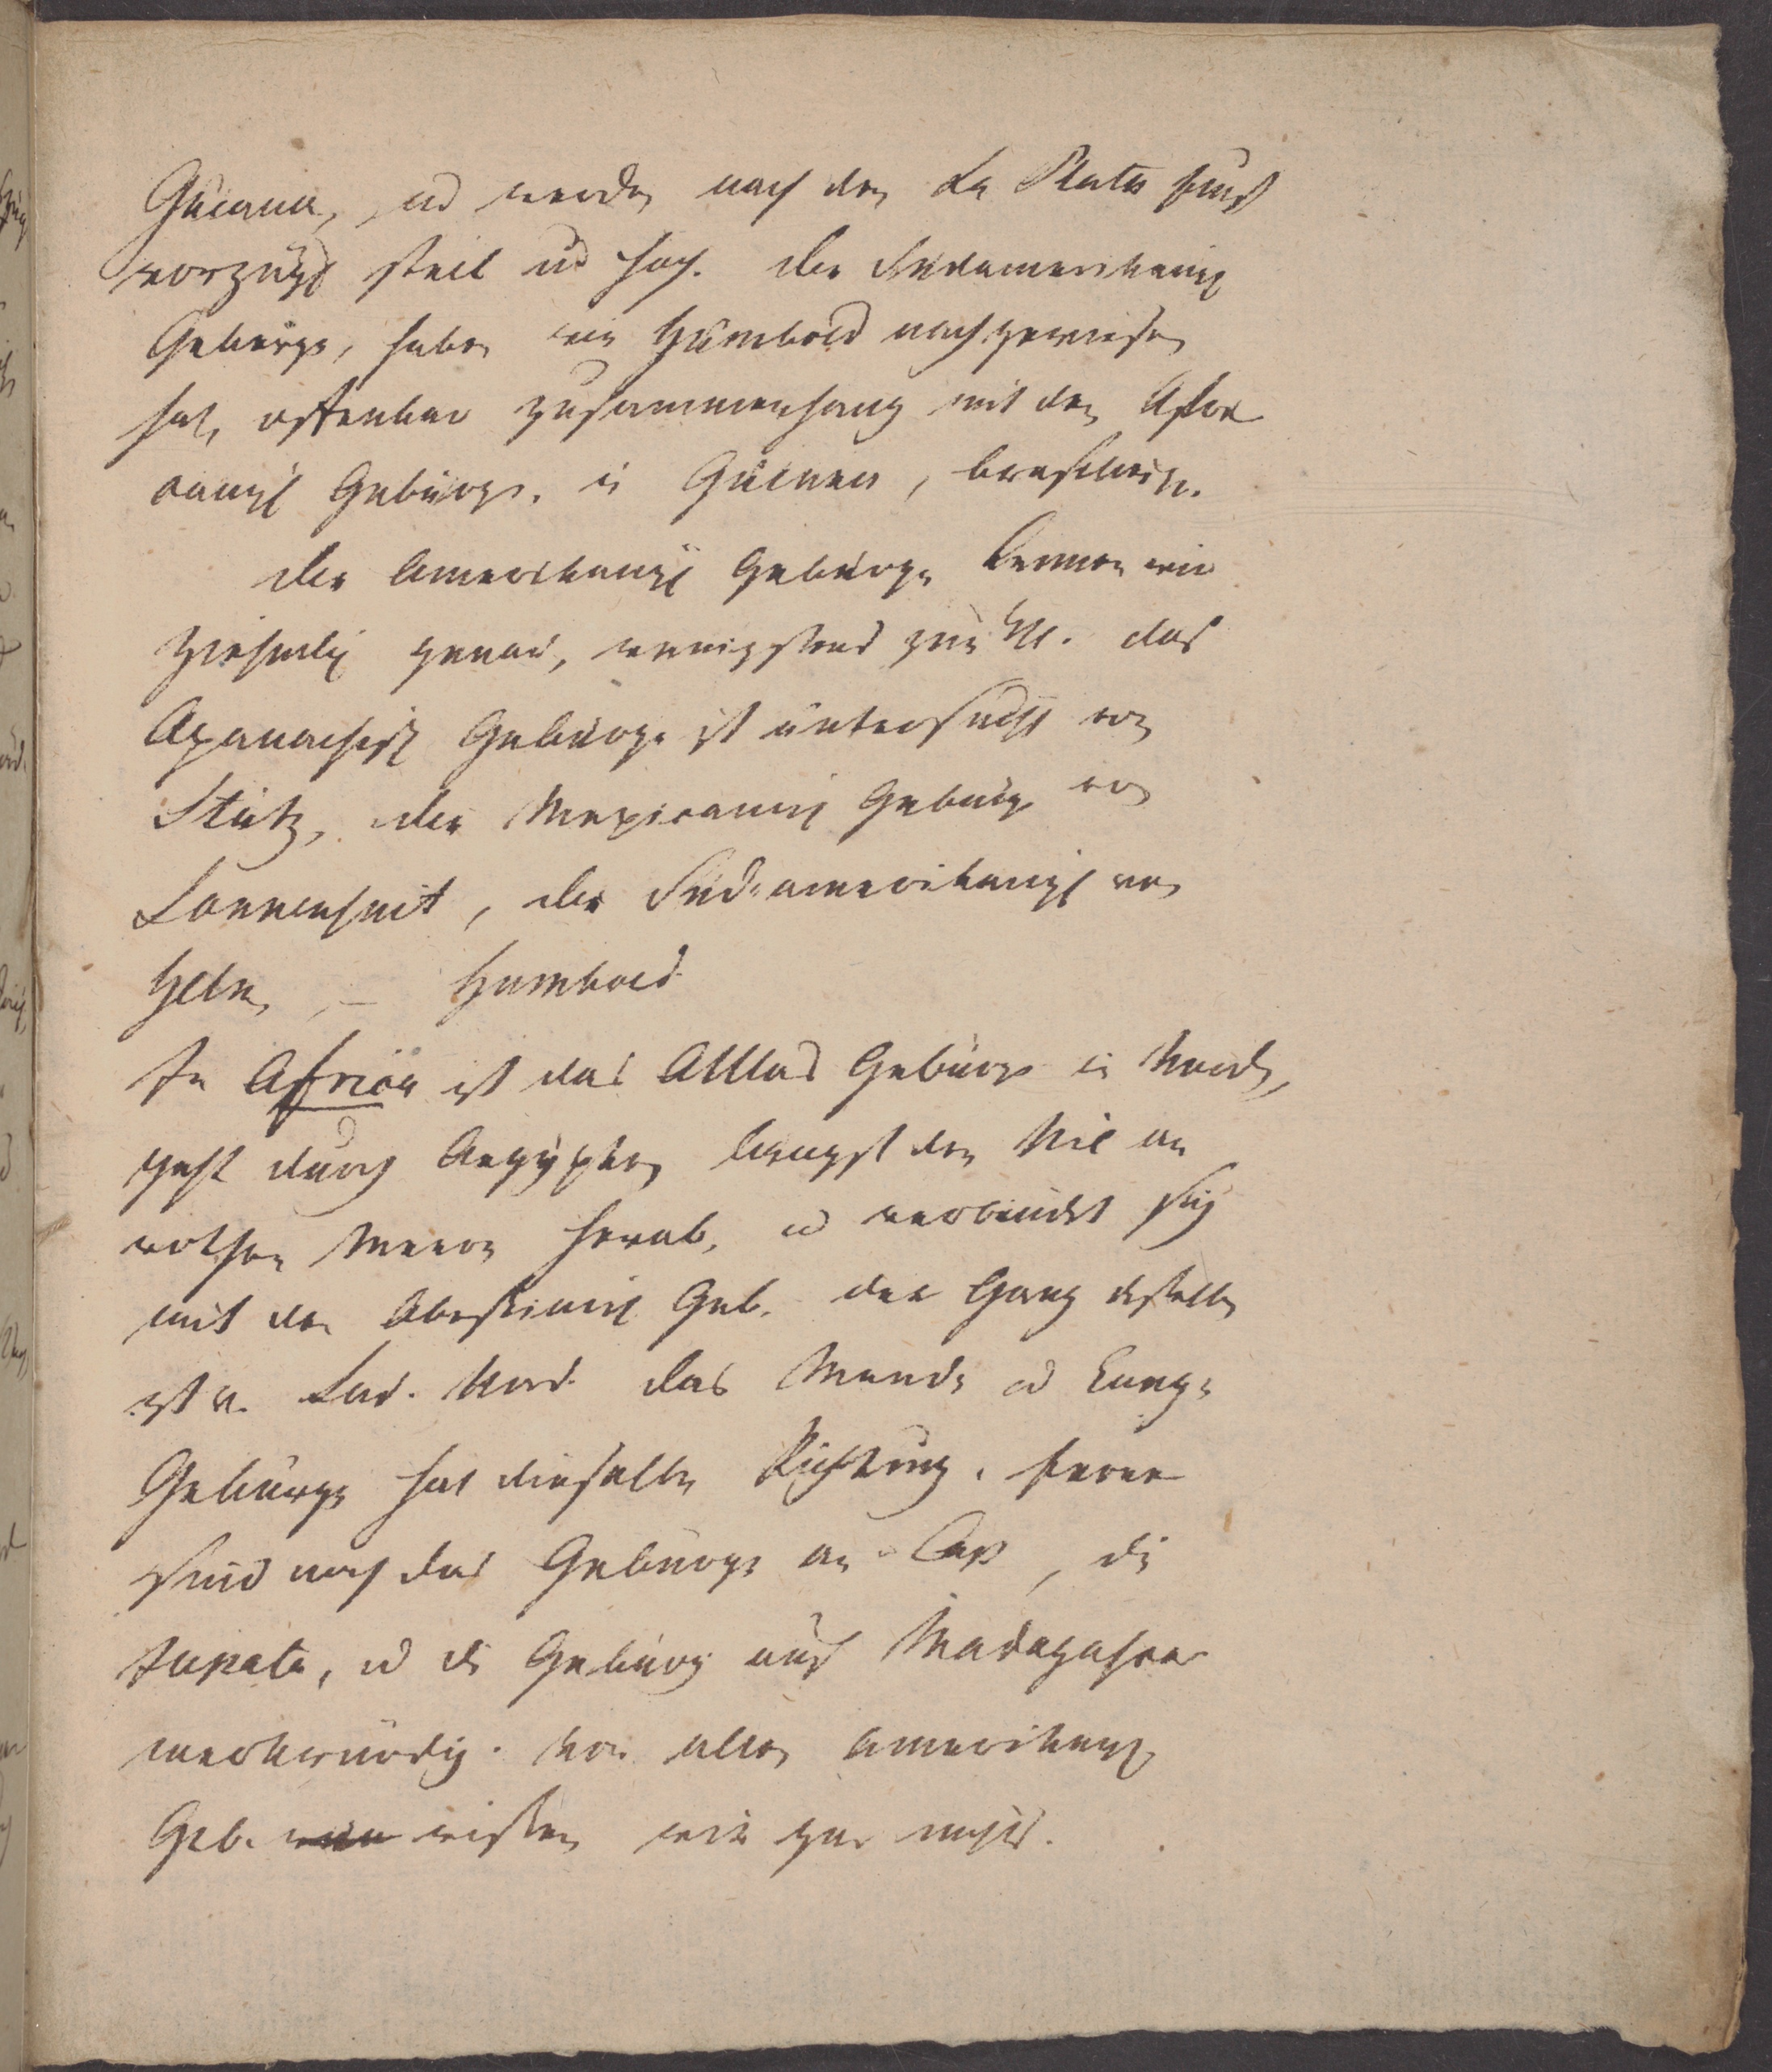 Guiana, und werden nach dem La Plata Fluß
vorzügl steil und hoch. Die Südamerikanisch
Gebürge, haben wie Humbold nachgewiesen
hat, offenbar Zusammenhang mit den Afri
canisch Gebürge. in Guinea,
Die Amerikanisch Gebürge kennen wir
ziehmlich genau, wenigstens zum Th. das
Apanachisch Gebürge ist untersucht von
Stütz, die Mexicanisch Gebürge von
Sonnenschmit, die Süd-amerikanisch von
Helm, – Humbold
In Africa ist das Atlas Gebürge in Norden,
geht durch Aegypten längst den Nil am
rothen Meere herab, und verbindet sich
mit den Abessinisch Geb. der Gang desselben
ist v. Süd. Nord. das Mande und
Gebürge hat dieselbe Richtung. Ferner
sind noch das Gebürge am Cap, die
Lupata, und die Gebürge auf Madagascar
merkwürdig. Von allen amerikanisch
Geb. wissen wir gar nichts.